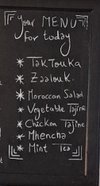 your MENU
for today
* Taktouka
* Zaalouk
* Moroccan Salad
* Vegetable Tajine
* Chicken Tajine
* Mhencha
* Mint Tea